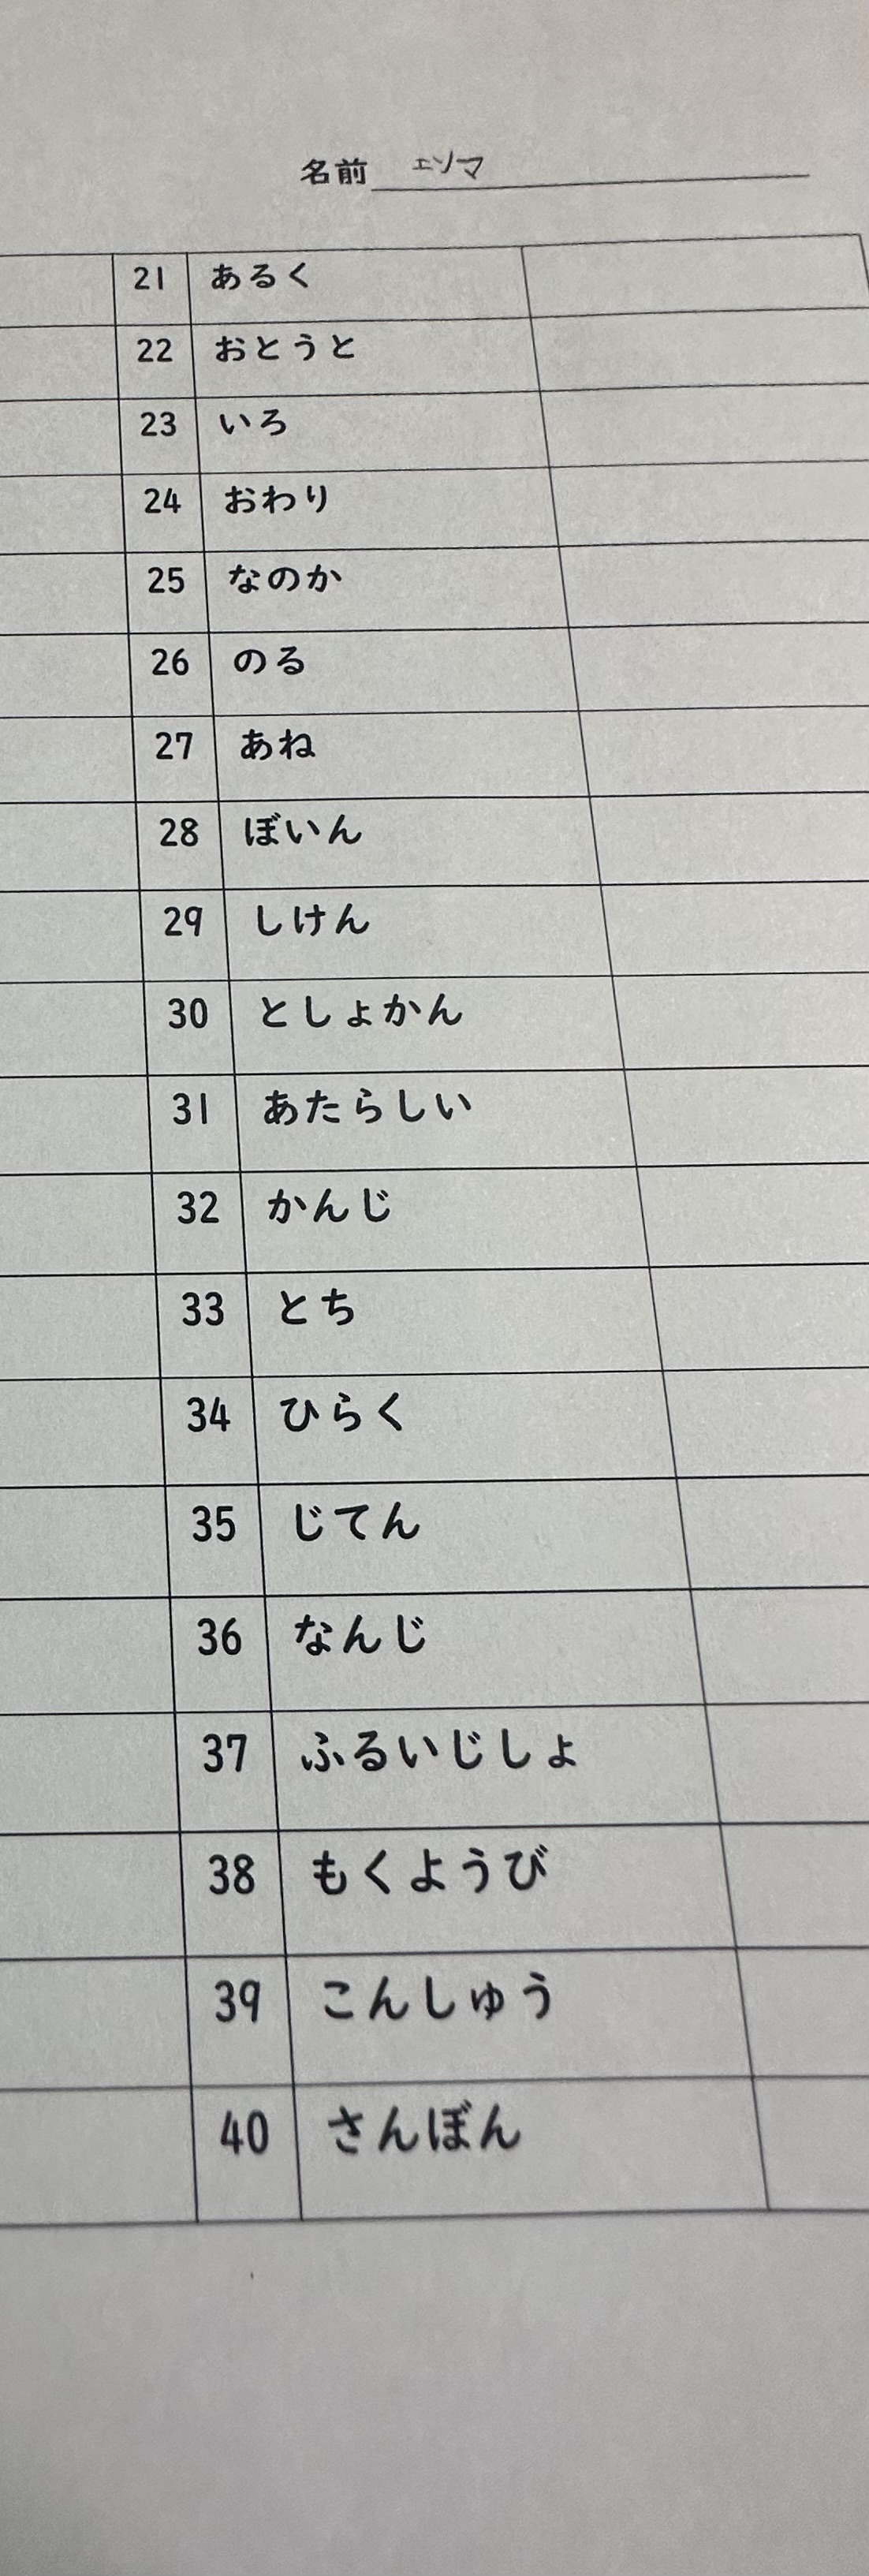 名前 エソマ
21 あるく
22 おとうと
23 いろ
24 おわり
25 なのか
26 のる
27 あね
28 ぼいん
29 しけん
30 としょかん
31 あたらしい
32 かんじ
33 とち
34 ひらく
35 じてん
36 なんじ
37 ふるいじしょ
38 もくようび
39 こんしゅう
40 さんぼん